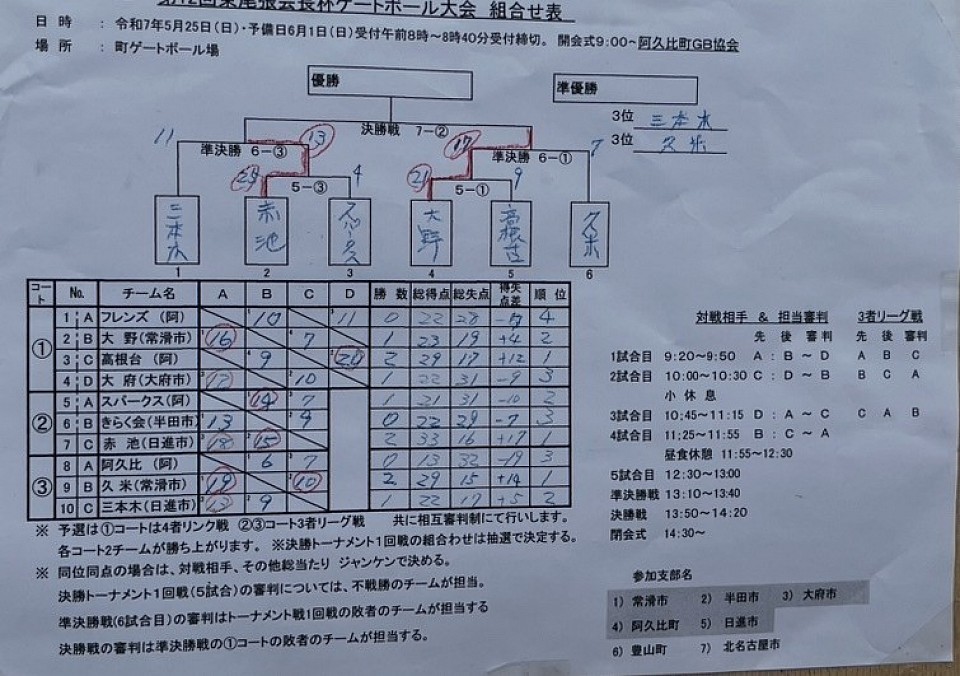 第12回東尾張会長杯ゲートボール大会 組合せ表
日時 : 令和7年5月25日(日)・予備日6月1日(日)受付午前8時~8時40分受付締切。 開会式9:00~阿久比町GB協会
場所 : 町ゲートボール場
優勝 準優勝
3位 三本木
3位 久米
決勝戦 7-②
11 準決勝 6-③ 13 17 準決勝 6-① 7
5-③ 4 21 5-① 9
三本木 赤池 スパークス 大野 高根台 久米
1 2 3 4 5 6
コート No. チーム名 A B C D 勝数 総得点 総失点 得失点差 順位
① 1 A フレンズ (阿) 10 11 0 22 28 4
2 B 大野(常滑市) 16 7 1 23 19 +4 2
3 C 高根台 (阿) 9 20 2 29 17 +12 1
4 D 大府(大府市) 12 10 1 22 31 -9 3
② 5 A スパークス(阿) 14 7 1 21 31 -10 2
6 B きらく会(半田市) 13 9 0 22 29 -7 3
7 C 赤池(日進市) 18 15 2 33 16 +17 1
③ 8 A 阿久比 (阿) 6 7 0 13 32 -19 3
9 B 久米(常滑市) 19 10 2 29 15 +14 1
10 C 三本木(日進市) 13 9 1 22 17 +5 2
※ 予選は①コートは4者リンク戦 ②③コート3者リーグ戦 共に相互審判制にて行いします。
各コート2チームが勝ち上がります。 ※決勝トーナメント1回戦の組合わせは抽選で決定する。
※ 同位同点の場合は、対戦相手、その他総当たり ジャンケンで決める。
決勝トーナメント1回戦(5試合)の審判については、不戦勝のチームが担当。
準決勝戦(6試合目)の審判はトーナメント戦1回戦の敗者のチームが担当する
決勝戦の審判は準決勝戦の①コートの敗者のチームが担当する。
対戦相手 & 担当審判 3者リーグ戦
先 後 審判 先 後 審判
1試合目 9:20~9:50 A : B ~ D A B C
2試合目 10:00~10:30 C : D ~ B B C A
小休息
3試合目 10:45~11:15 D : A ~ C C A B
4試合目 11:25~11:55 B : C ~ A
昼食休憩 11:55~12:30
5試合目 12:30~13:00
準決勝戦 13:10~13:40
決勝戦 13:50~14:20
閉会式 14:30~
参加支部名
1) 常滑市 2) 半田市 3) 大府市
4) 阿久比町 5) 日進市
6) 豊山町 7) 北名古屋市